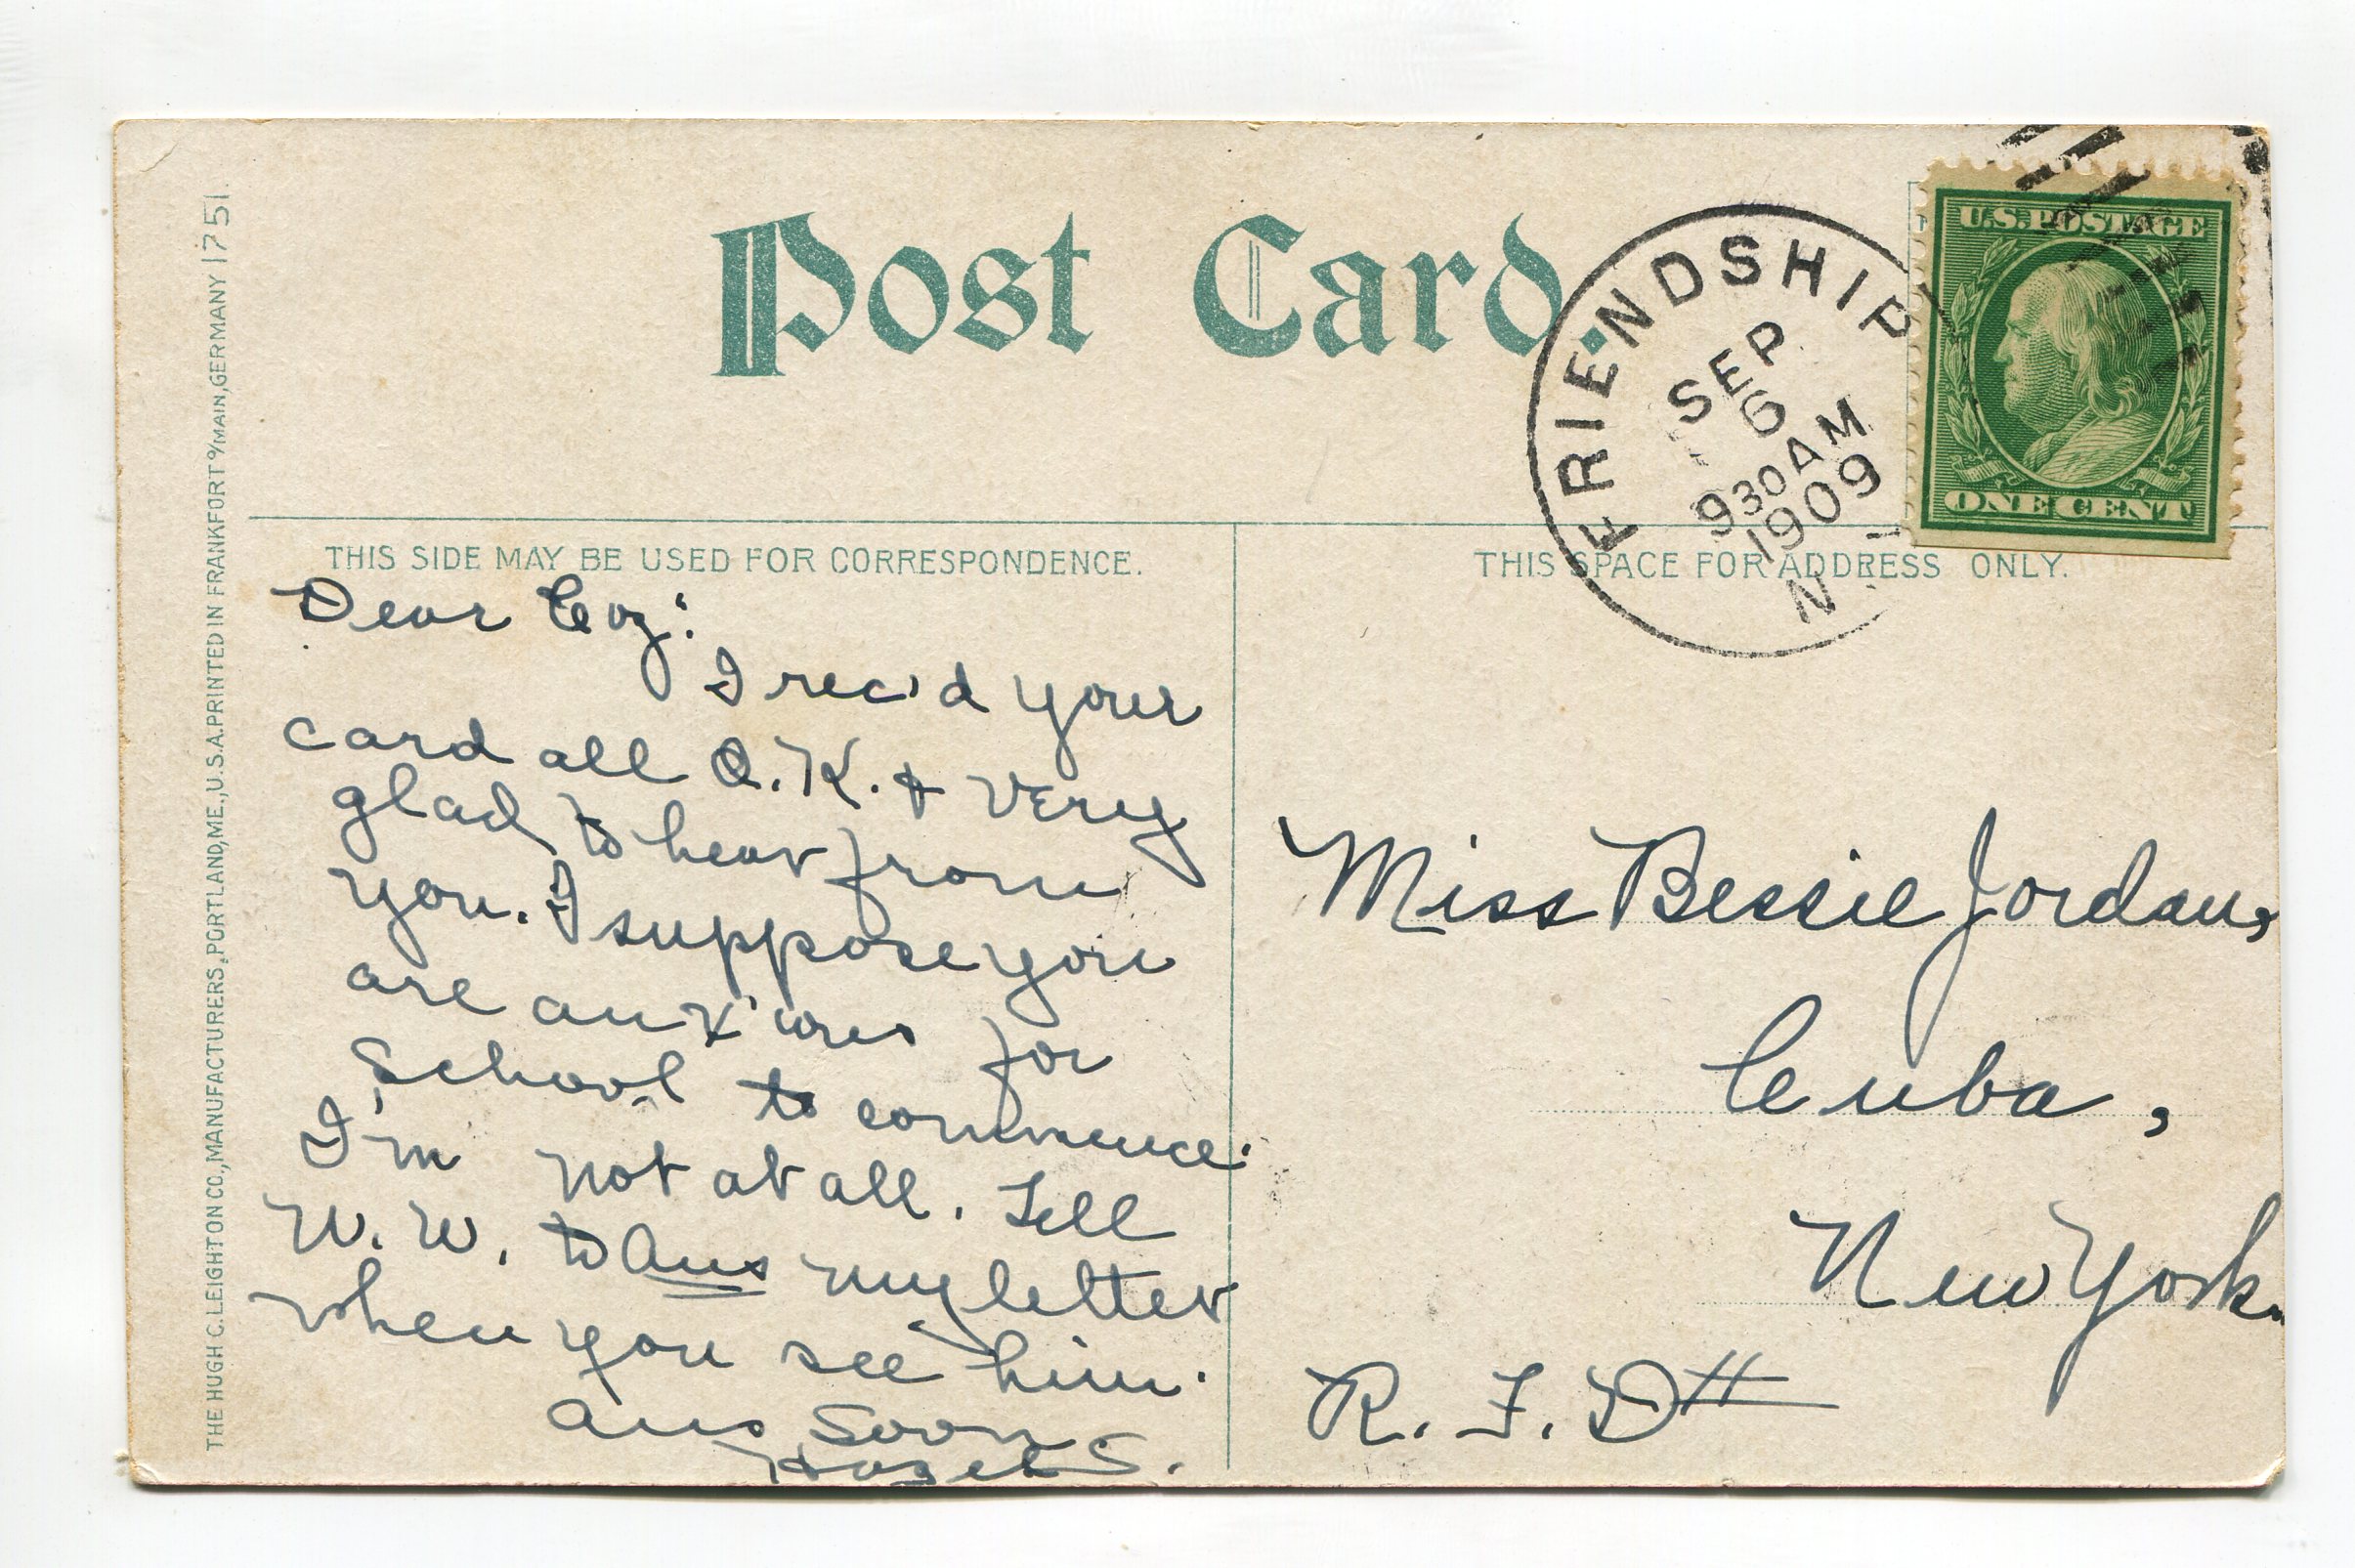 Post Card.
FRIENDSHIP
SEP
6
930AM
1909
N.
U.S. POSTAGE
ONE CENT
THIS SIDE MAY BE USED FOR CORRESPONDENCE.
THIS SPACE FOR ADDRESS ONLY.
Dear Coz:
I rec'd your
card all O.K. & very
glad to hear from
you. I suppose you
are anx'ious for
School to commence.
I'm not at all. Tell
W. W. to Ans my letter
when you see him.
Ans Soon
Hazel S.
Miss Bessie Jordan,
Cuba,
New York.
R. F. D #
THE HUGH C. LEIGHTON CO., MANUFACTURERS, PORTLAND, ME., U.S.A. PRINTED IN FRANKFORT o/MAIN, GERMANY 1751.